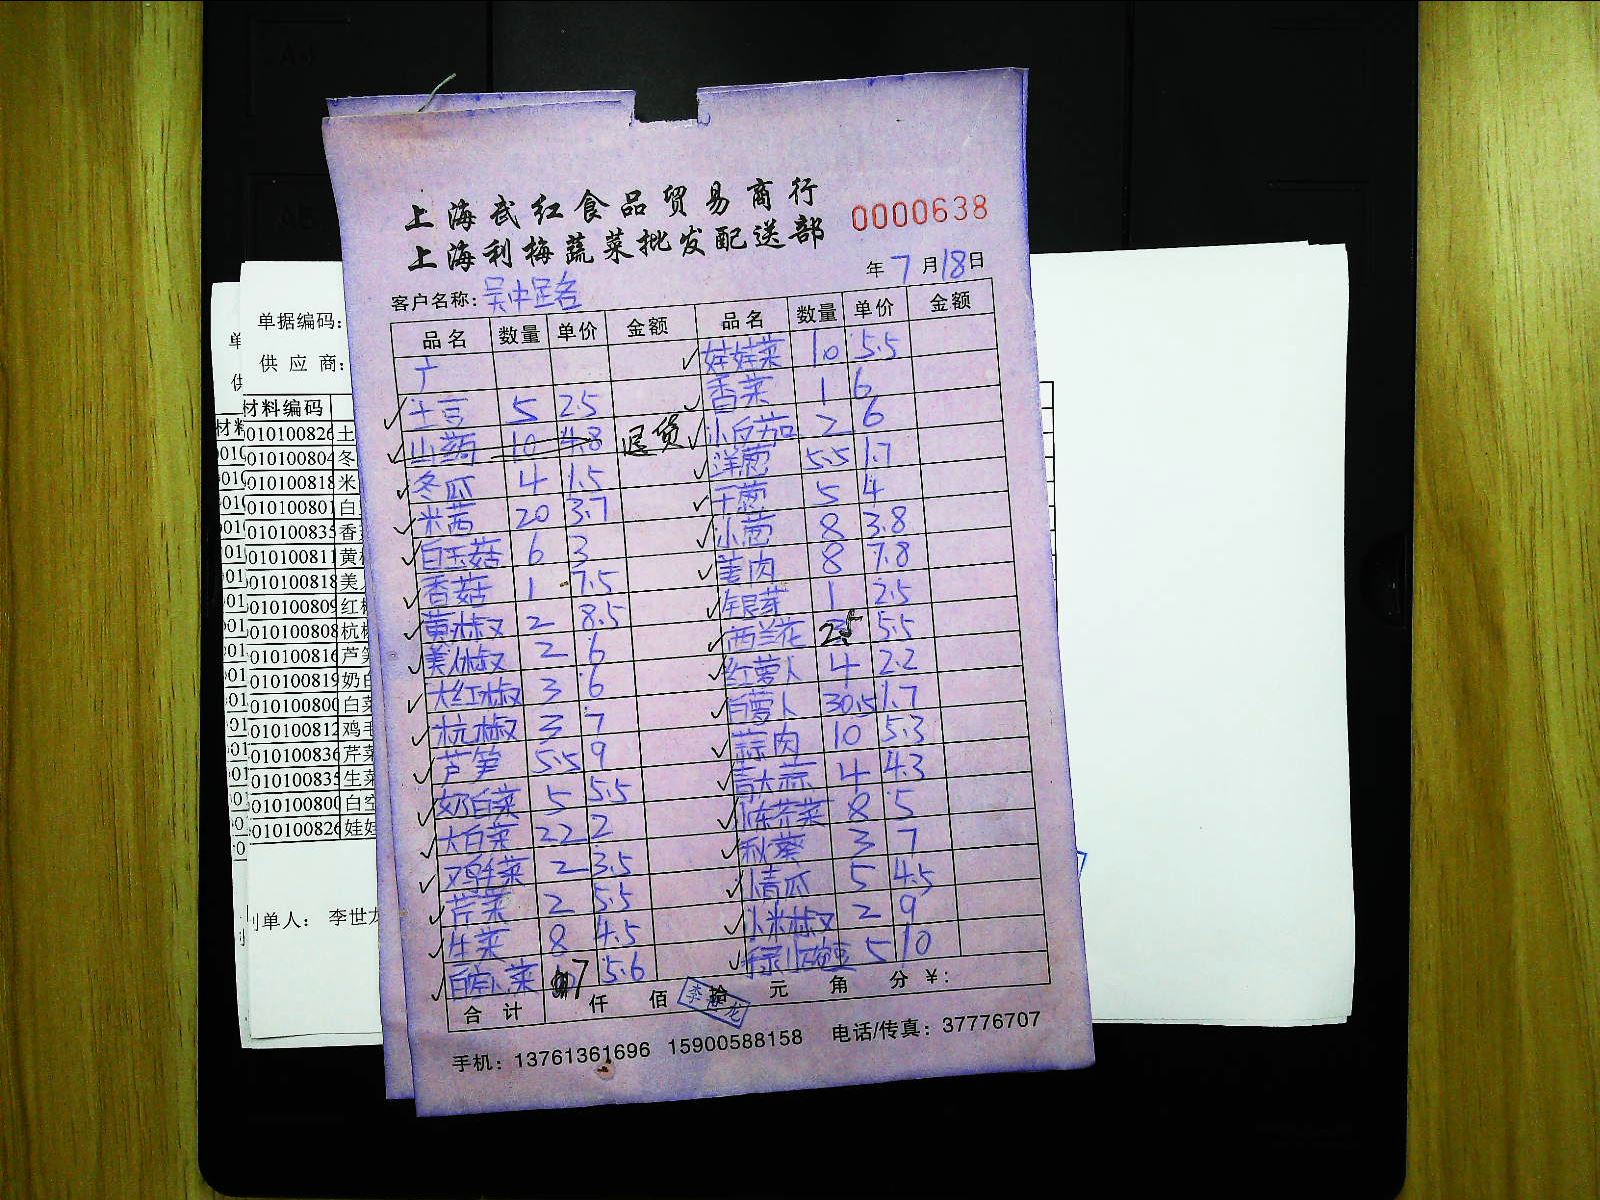 上海武红食品贸易商行
上海利梅蔬菜批发配送部
0000638
年 7 月 18 日
客户名称: 吴中
品名 数量 单价 金额 品名 数量 单价 金额
娃娃菜 10 5.5
土豆 5 2.5 香菜 1 6
山药 10 4.8 退货 小反茄 2 6
冬瓜 4 1.5 洋葱 5.5 1.7
米茜 20 3.7 干葱 5 4
白玉菇 6 3 小葱 8 3.8
香菇 1 7.5 姜肉 8 7.8
黄椒 2 8.5 银芽 1 2.5
美人椒 2 6 西兰花 2.5 5.5
大红椒 3 6 红萝卜 4 2.2
杭椒 3 7 白萝卜 30.5 1.7
芦笋 5.5 9 蒜肉 10 5.3
奶白菜 5 5.5 青大蒜 4 4.3
大白菜 22 2 芥菜 8 5
鸡毛菜 2 3.5 秋葵 3 7
芹菜 2 5.5 小青瓜 5 4.5
生菜 8 4.5 小米椒 2 9
白空心菜 7 5.6 5 10
合计 仟 佰 拾 元 角 分 ¥:
李世龙
手机: 13761361696 15900588158 电话/传真: 37776707
单据编码:
供应商:
材料编码
010100826 土
010100804 冬
010100818 米
01010080 白
01010083 香
01010081 黄
010100818 美
010100809 红
010100808 杭
010100816 芦
010100819 奶白
01010080 白菜
01010081 鸡毛
010100836 芹菜
01010083 生菜
01010080 白空
010100826 娃娃
制单人: 李世龙